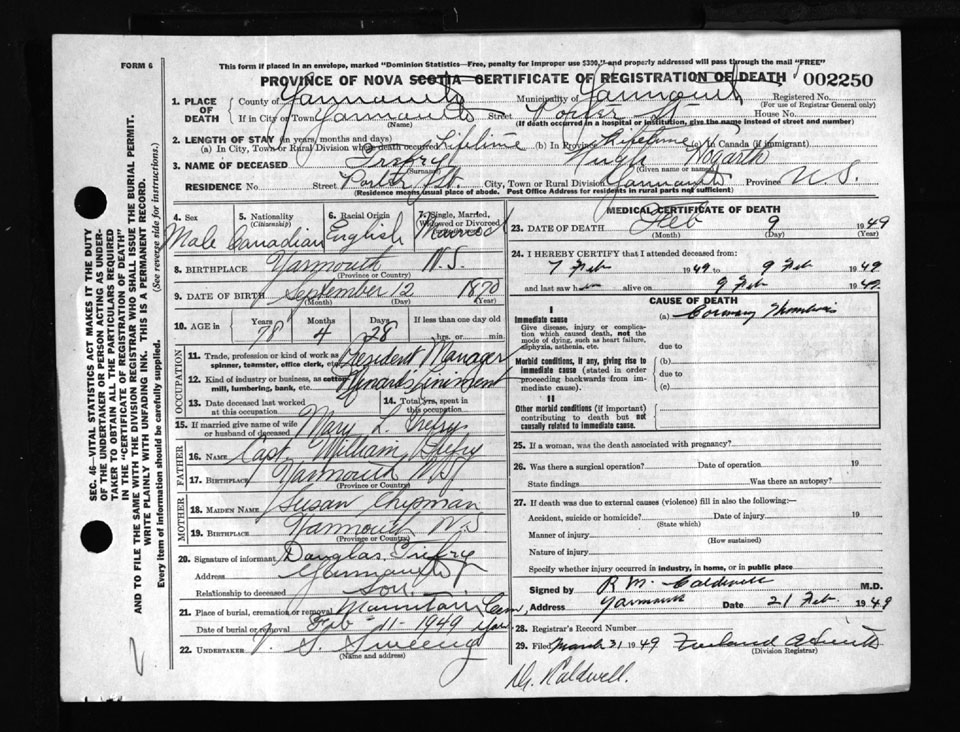 FORM 6
This form if placed in an envelope, marked "Dominion Statistics—Free, penalty for improper use $300," and properly addressed will pass through the mail "FREE"
PROVINCE OF NOVA SCOTIA CERTIFICATE OF REGISTRATION OF DEATH 002250
1. PLACE OF DEATH County of Yarmouth Municipality of Yarmouth Registered No.
(For use of Registrar General only)
If in City or Town Yarmouth Street Porter St House No.
(Name) (If death occurred in a hospital or institution, give the name instead of street and number)
2. LENGTH OF STAY (in years, months and days)
(a) In City, Town or Rural Division where death occurred Lifetime (b) In Province Lifetime (c) In Canada (if immigrant)
3. NAME OF DECEASED Trefry Hugh Hogarth
(Surname) (Given name or names)
RESIDENCE No. Street Porter St. City, Town or Rural Division Yarmouth Province N.S.
(Residence means usual place of abode. Post Office Address for residents in rural parts not sufficient)
4. Sex 5. Nationality (Citizenship) 6. Racial Origin 7. Single, Married, Widowed or Divorced
Male Canadian English Married
8. BIRTHPLACE Yarmouth N.S.
(Province or Country)
9. DATE OF BIRTH September 12 1870
(Month) (Day) (Year)
10. AGE in Years Months Days If less than one day old
78 4 28 hrs. or min.
OCCUPATION
11. Trade, profession or kind of work as spinner, teamster, office clerk, etc. President Manager
12. Kind of industry or business, as cotton mill, lumbering, bank, etc. Minard's Liniment
13. Date deceased last worked at this occupation 14. Total yrs. spent in this occupation
15. If married give name of wife or husband of deceased Mary L. Trefry
FATHER
16. NAME Capt. William Trefry
17. BIRTHPLACE Yarmouth NS
(Province or Country)
MOTHER
18. MAIDEN NAME Susan Chipman
19. BIRTHPLACE Yarmouth N.S
(Province or Country)
20. Signature of informant Douglas Trefry
Address Yarmouth
Relationship to deceased son
21. Place of burial, cremation or removal Mountain Cem,
Date of burial or removal Feb 11-1949 Yar
22. UNDERTAKER J. S. Sweeny
(Name and address)
MEDICAL CERTIFICATE OF DEATH
23. DATE OF DEATH Feb 9 1949
(Month) (Day) (Year)
24. I HEREBY CERTIFY that I attended deceased from:
7 Feb 1949 to 9 Feb 1949
and last saw him alive on 9 Feb 1949
CAUSE OF DEATH
I
Immediate cause (a) Coronary Thrombosis
Give disease, injury or complication which caused death, not the mode of dying, such as heart failure, asphyxia, asthenia, etc.
due to
Morbid conditions, if any, giving rise to immediate cause (stated in order proceeding backwards from immediate cause). (b)
due to
(c)
II
Other morbid conditions (if important) contributing to death but not causally related to immediate cause.
25. If a woman, was the death associated with pregnancy?
26. Was there a surgical operation? Date of operation 19
State findings Was there an autopsy?
27. If death was due to external causes (violence) fill in also the following:—
Accident, suicide or homicide? Date of injury 19
(State which)
Manner of injury
(How sustained)
Nature of injury
Specify whether injury occurred in industry, in home, or in public place
Signed by R M. Caldwell M.D.
Address Yarmouth Date 21 Feb. 1949
28. Registrar's Record Number
29. Filed March 31 1949
(Division Registrar)
Dr. Caldwell.
SEC. 46—VITAL STATISTICS ACT MAKES IT THE DUTY
OF THE UNDERTAKER OR PERSON ACTING AS UNDER-
TAKER TO OBTAIN ALL THE PARTICULARS REQUIRED
IN THE "CERTIFICATE OF REGISTRATION OF DEATH"
AND TO FILE THE SAME WITH THE DIVISION REGISTRAR WHO SHALL ISSUE THE BURIAL PERMIT.
WRITE PLAINLY WITH UNFADING INK. THIS IS A PERMANENT RECORD.
Every item of information should be carefully supplied. (See reverse side for instructions.)
2